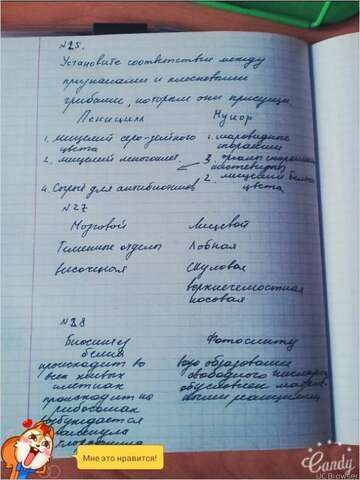 №25.
Установите соответствие между
признаками и плесневыми
грибами, которым они присущи.
Пеницилл Мукор
1. мицелий серо-зелёного цвета
1. шаровидные спорангии
2. мицелий многоклет.
3.
2. мицелий белого цвета
4. Сырьё для антибиотиков
№27
Мозговой Лицевой
Теменные отделы Лобная
височная Скуловая
верхнечелюстная
носовая
№28
Биосинтез белка
Фотосинтез
происходит во
всех живых
клетках
происходит на
рибосомах
образование
свободного кислорода
обусловлен
реакциями
Мне это нравится!
Candy
UC Browser